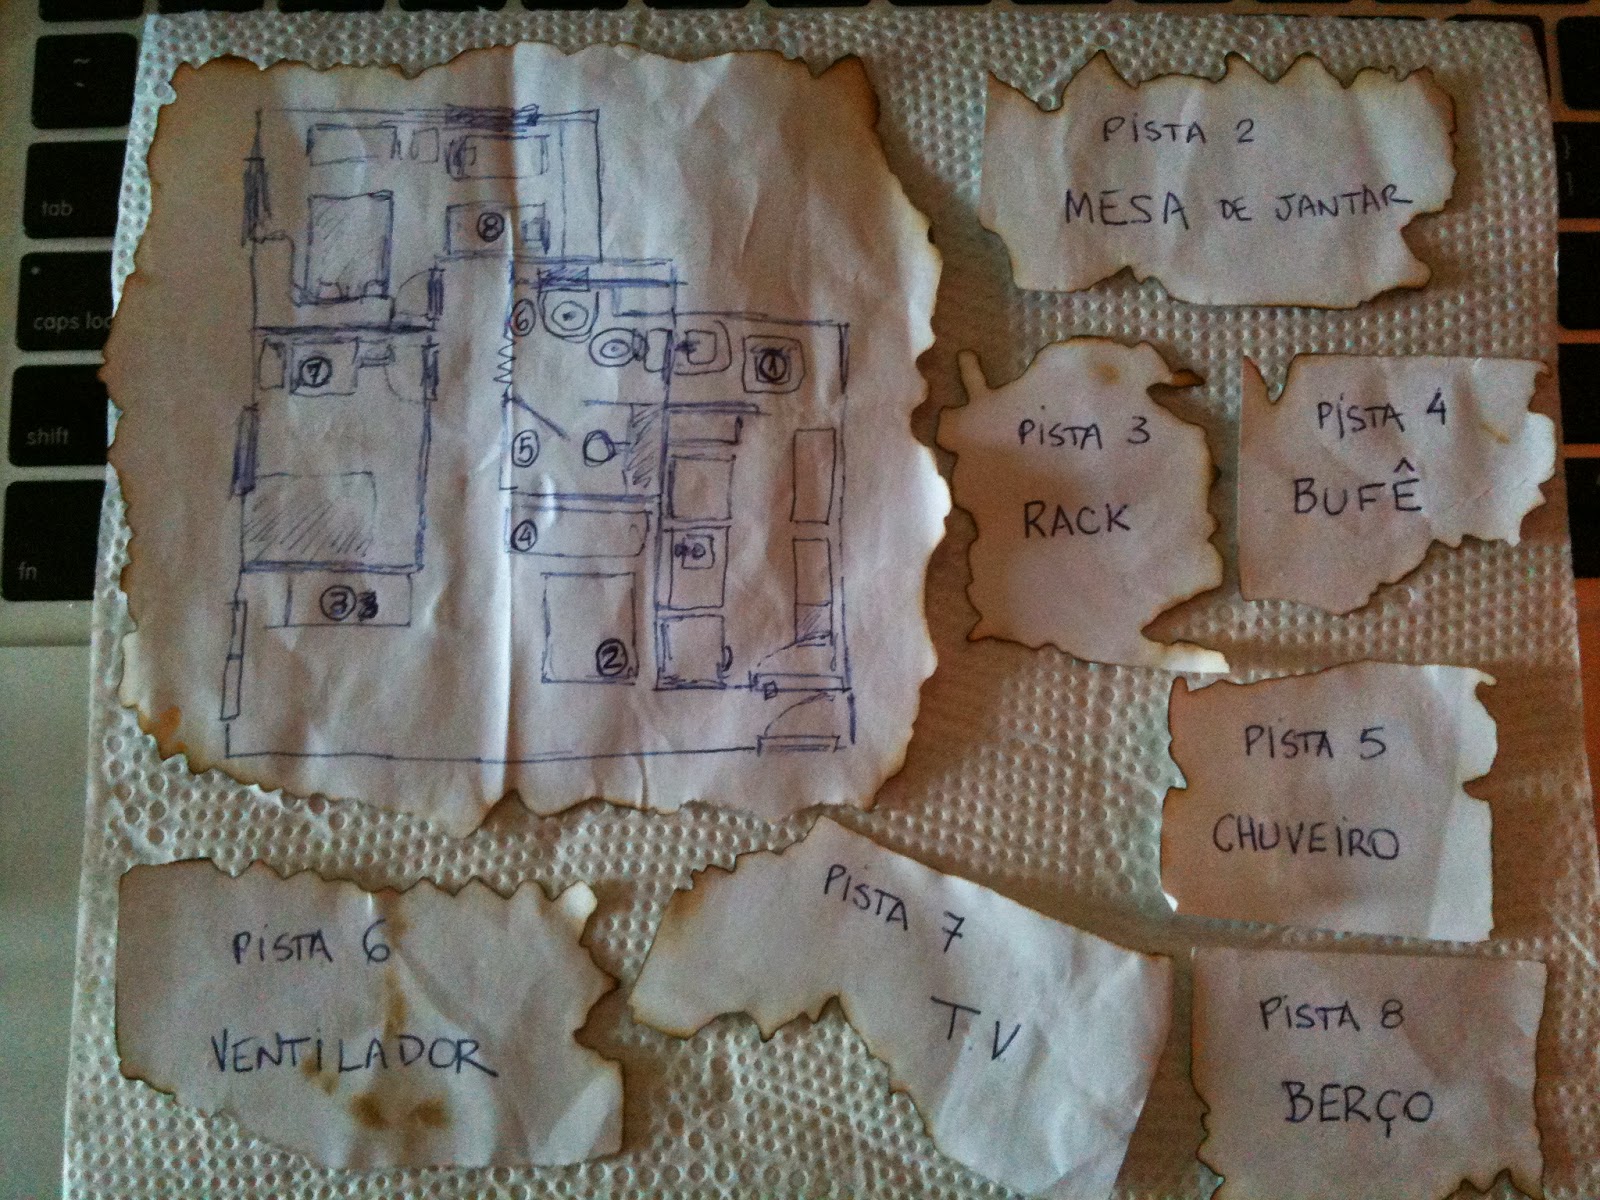 ~
`
tab
caps loc
shift
fn
8
6
7
1
5
4
3
2
PISTA 2
MESA DE JANTAR
PISTA 3
RACK
PISTA 4
BUFÊ
PISTA 5
CHUVEIRO
PISTA 6
VENTILADOR
PISTA 7
T.V
PISTA 8
BERÇO